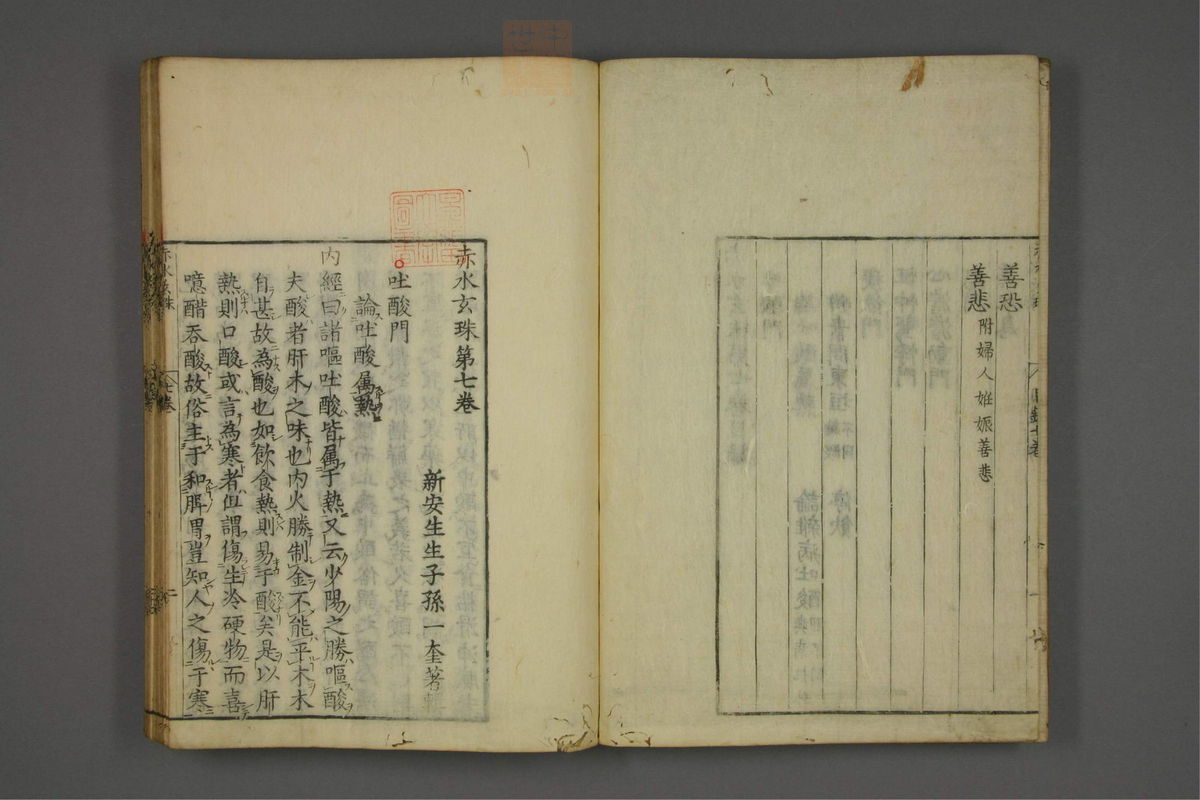 善恐
善悲附婦人妊娠善悲
赤水玄珠第七卷
新安生生子孫一奎著輯
吐酸門
論吐酸屬熱
内經曰諸嘔吐酸皆属于熱又云少陽之勝嘔酸
夫酸者肝木之味也内火勝制金不能平木木
自甚故為酸也如飲食熱則易于酸矣是以肝
熱則口酸或言為寒者但謂傷生冷硬物而喜
噫醋吞酸故俗主于和脾胃豈知人之傷于寒